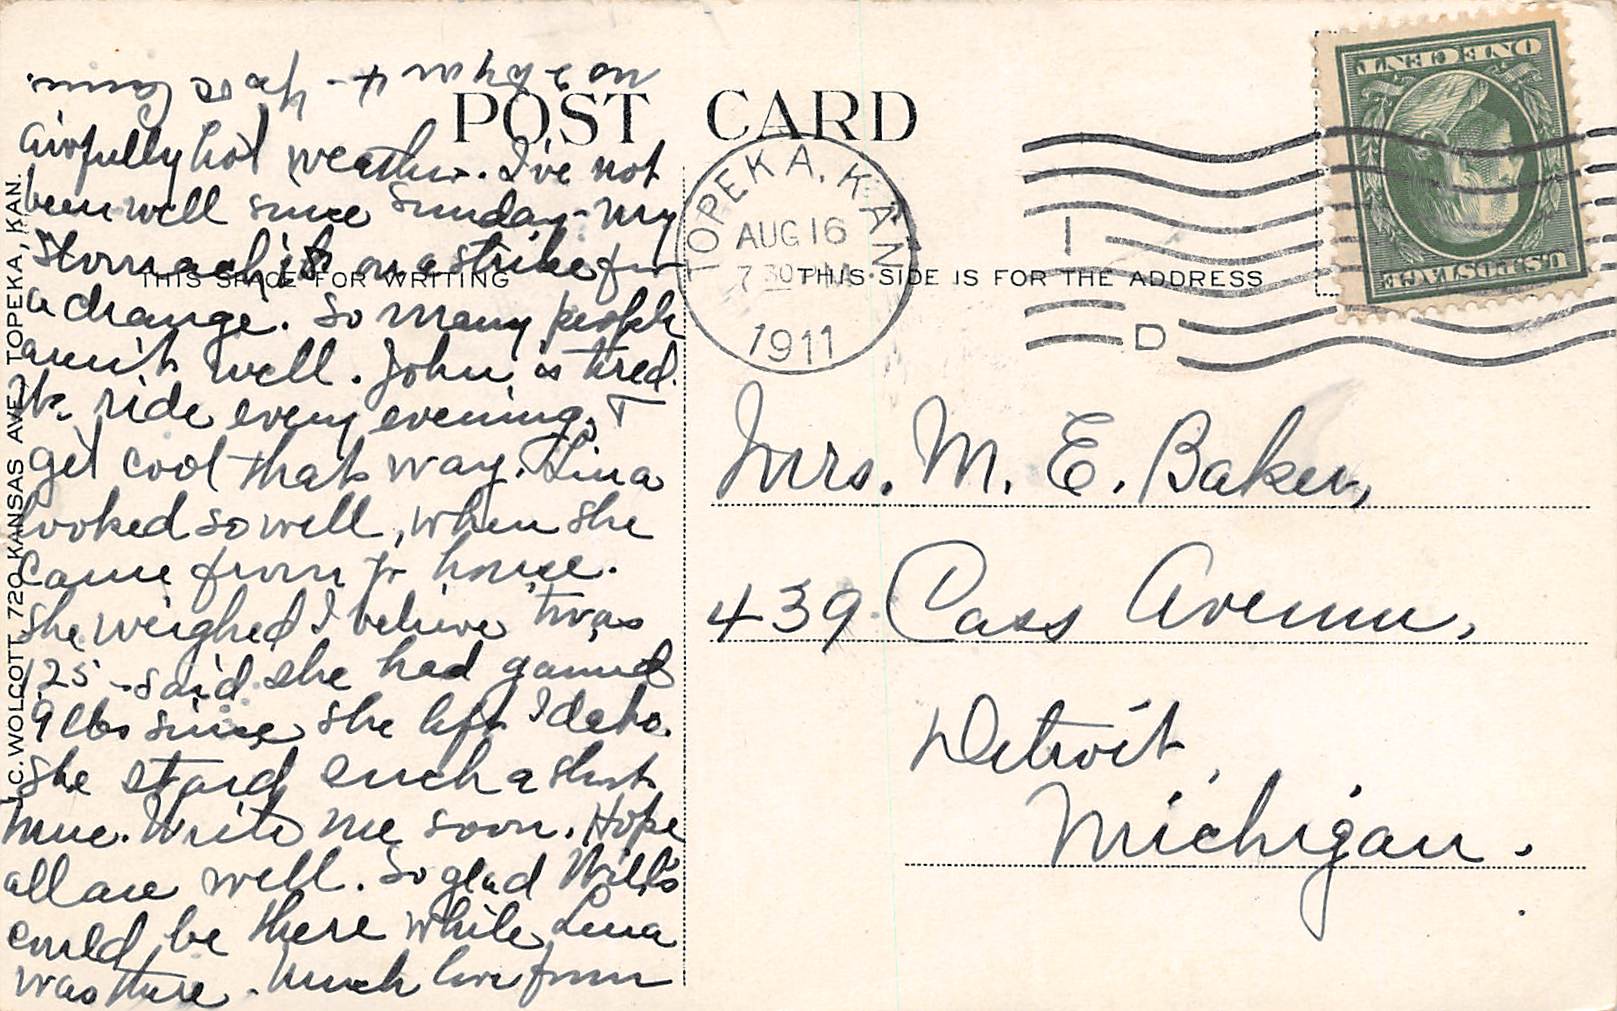 POST CARD
THIS SPACE FOR WRITING
THIS SIDE IS FOR THE ADDRESS
J.C. WOLCOTT, 720 KANSAS AVE., TOPEKA, KAN.
TOPEKA, KAN.
AUG 16
7 30
1911
I
D
U.S. POSTAGE
ONE CENT
Awfully hot weather. I've not
been well since Sunday - My
Stomach is on a strike for
a change. So many people
ain't well. John is tired.
We ride every evening, &
get cool that way. Lina
looked so well, when she
came from yr house.
She weighed I believe 'twas
125 - said she had gained
9 lbs since she left Idaho.
She staid such a short
time. Write me soon. Hope
all are well. So glad Will's
could be there while Lina
was there. Much love from
Mrs. M. E. Baker,
439 Cass Avenue,
Detroit,
Michigan.